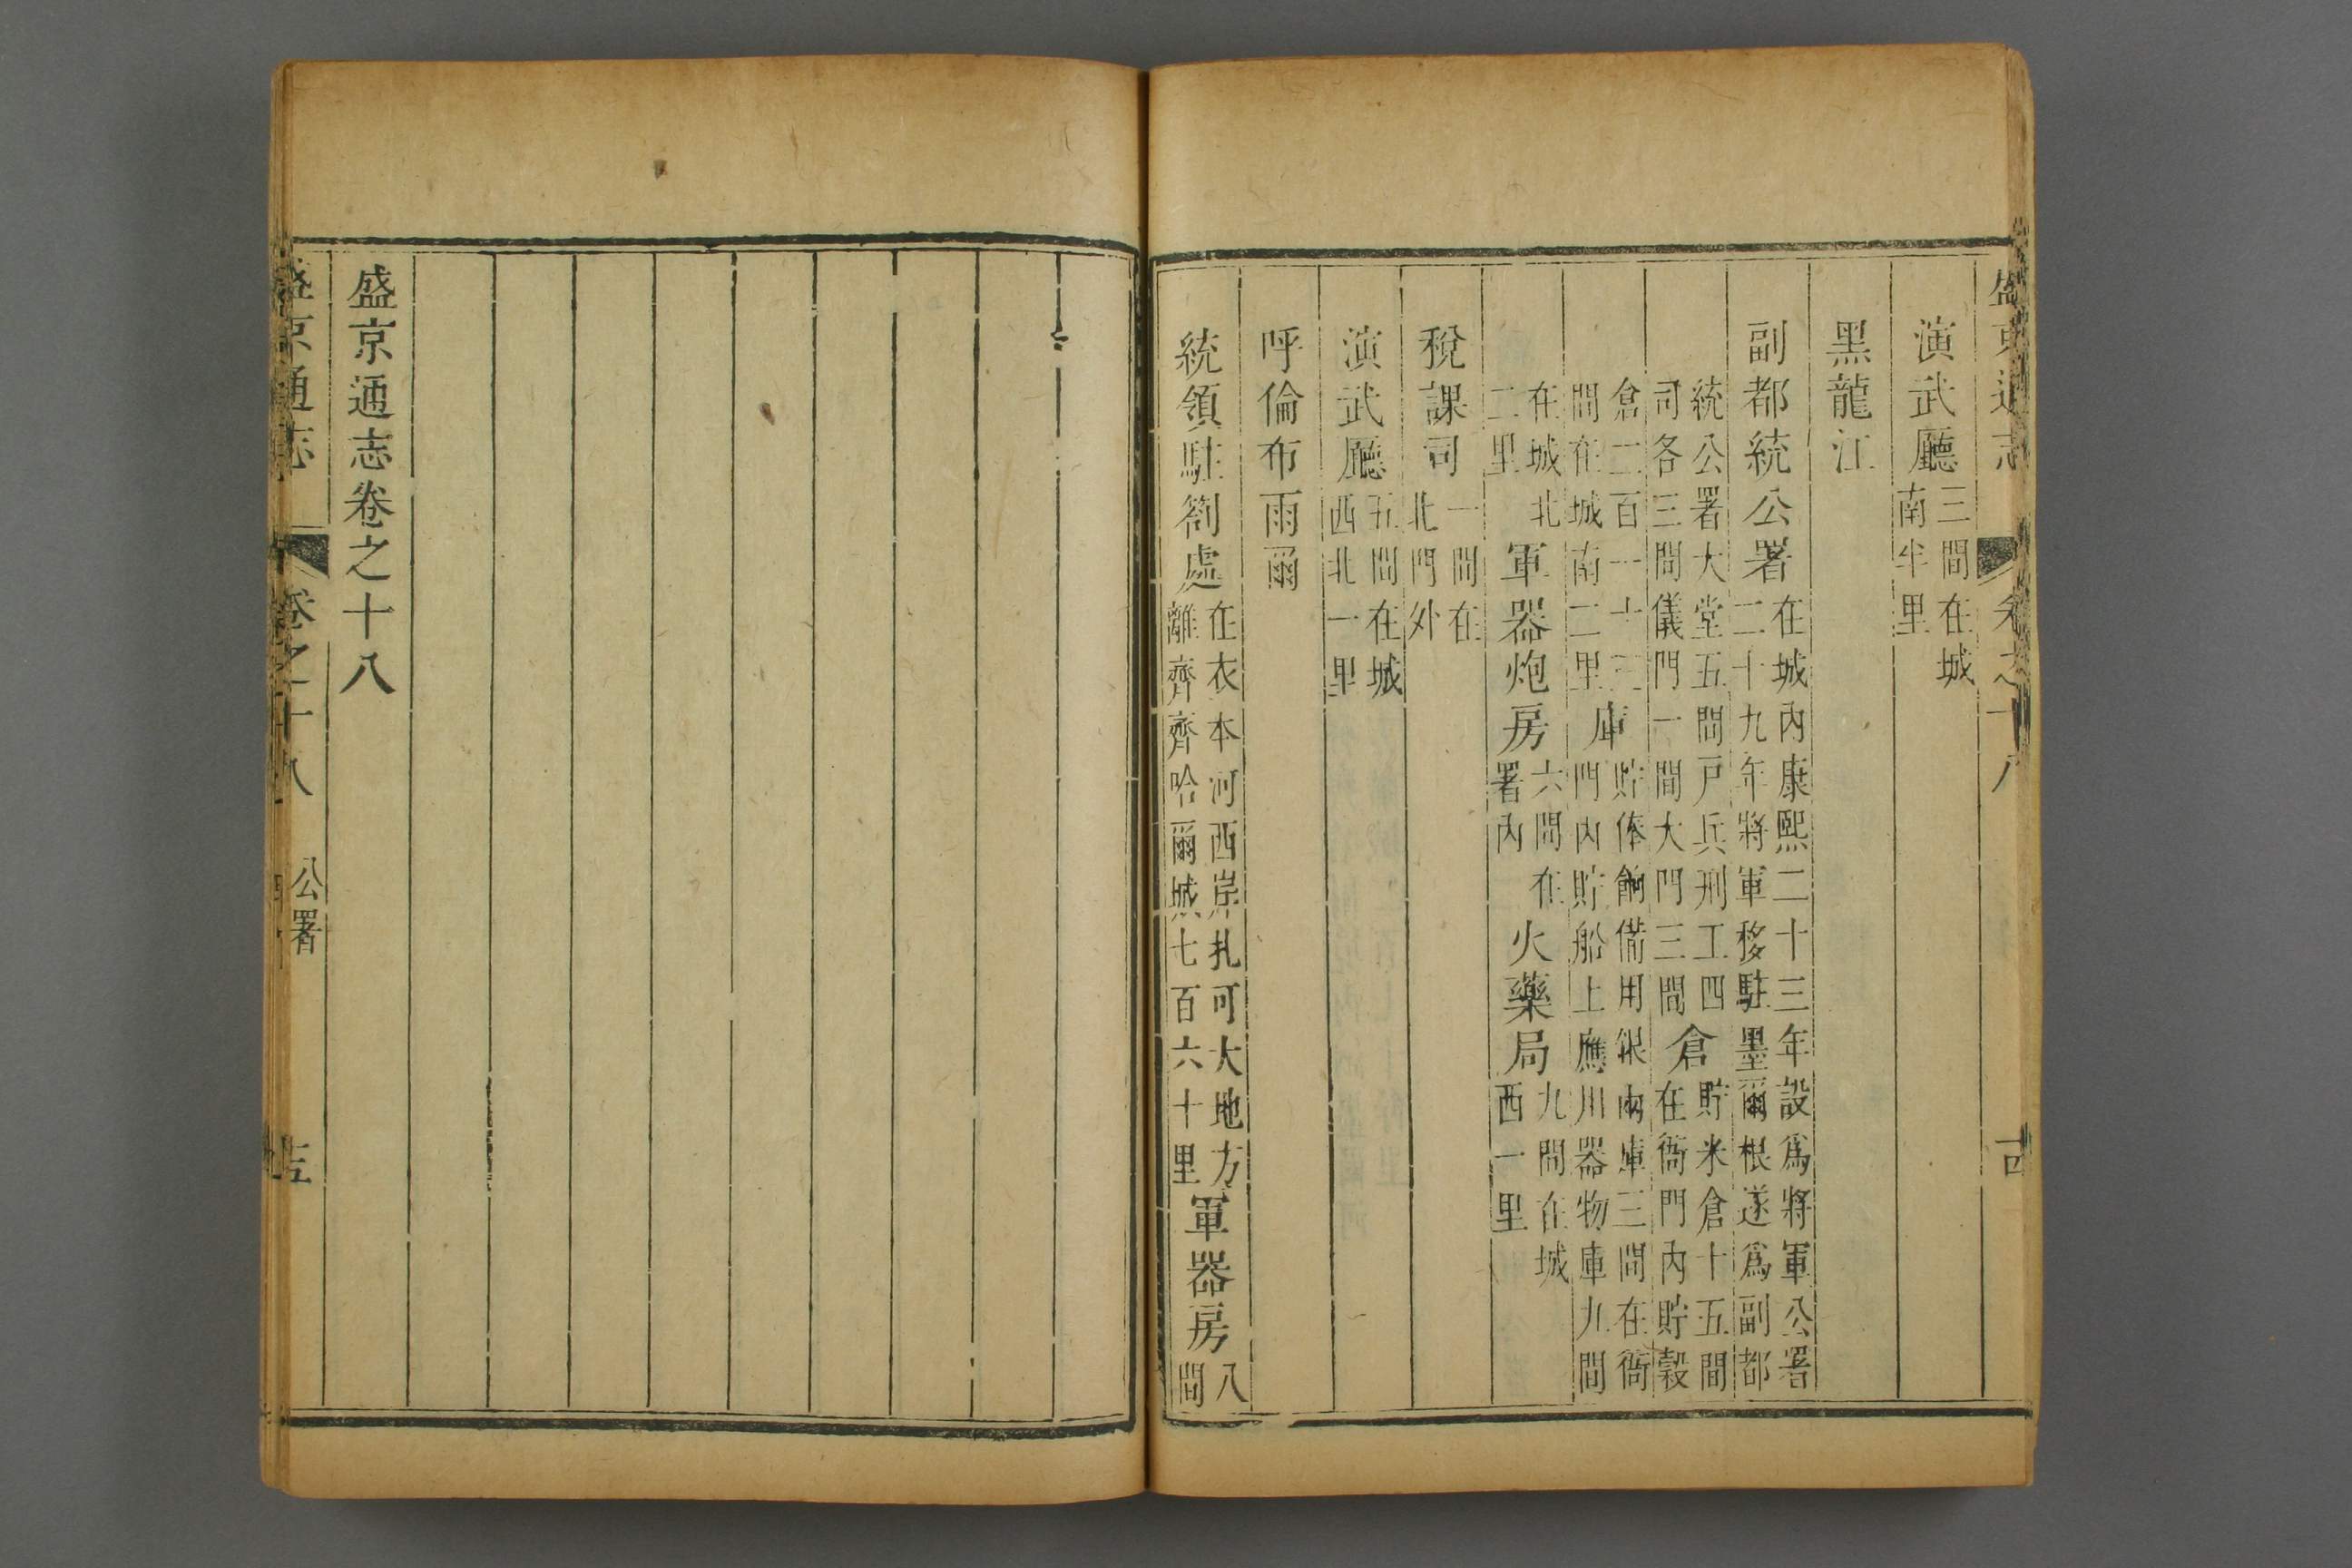 盛京通志 卷之十八
演武廳三間在城南半里
黑龍江
副都統公署在城內康熙二十三年設爲將軍公署二十九年將軍移駐墨爾根遂爲副都
統公署大堂五間戶兵刑工四司各三間儀門一間大門三間倉貯米倉十五間在衙門內貯穀
倉二百一十三間在城南二里庫貯俸餉備用銀兩庫三間在衙門內貯船上應用器物庫九間
在城北二里軍器炮房六間在署內火藥局九間在城西一里
稅課司一間在北門外
演武廳五間在城西北一里
呼倫布雨爾
統領駐劄處在衣本河西岸扎可大地方離齊齊哈爾城七百六十里軍器房八間
盛京通志卷之十八
盛京通志 卷之十八 公署